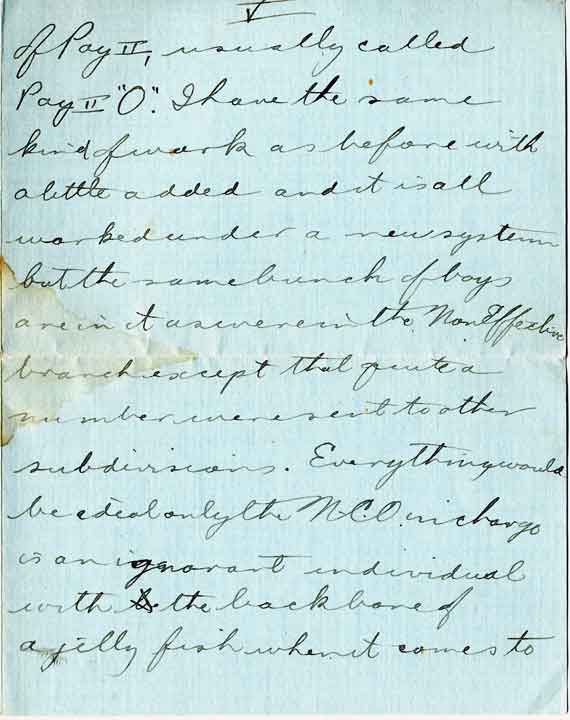 V
of Pay II, usually called
Pay II "O". I have the same
kind of work as before with
a little added and it is all
worked under a new system
but the same bunch of boys
are in it as were in the Non Effective
branch except that quite a
number were sent to other
subdivisions. Everything would
be ideal only the N.C.O. in charge
is an ignorant individual
with the backbone of
a jelly fish when it comes to